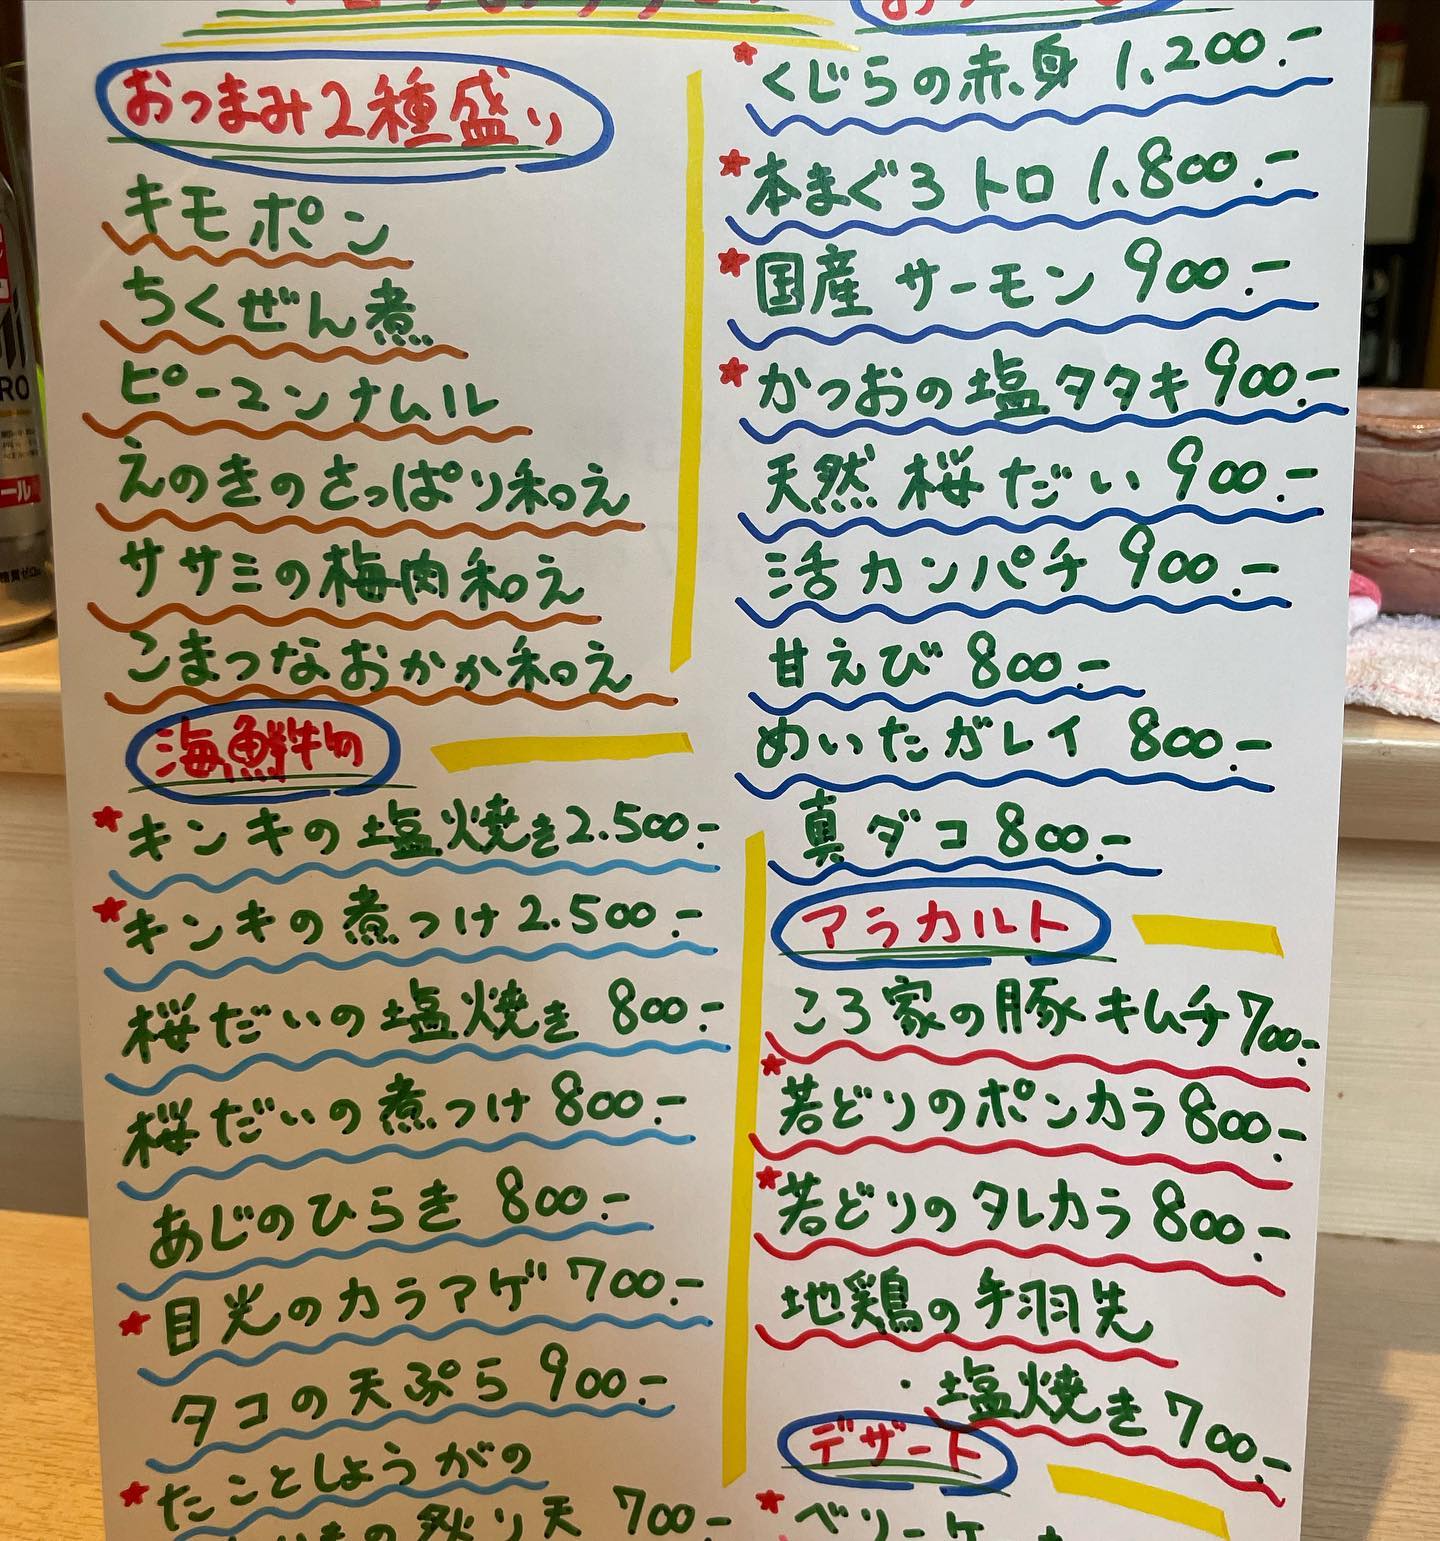 おつまみ2種盛り
キモポン
ちくぜん煮
ピーマンナムル
えのきのさっぱり和え
ササミの梅肉和え
こまつなおかか和え
海鮮物
キンキの塩焼き2.500.-
キンキの煮つけ2.500.-
桜だいの塩焼き 800.-
桜だいの煮つけ 800.-
あじのひらき 800.-
目光のカラアゲ 700.-
タコの天ぷら 900.-
たことしょうがの
くじらの赤身 1,200.-
本まぐろ トロ 1.800.-
国産 サーモン 900.-
かつおの塩タタキ 900.-
天然 桜だい 900.-
活カンパチ 900.-
甘えび 800.-
めいたガレイ 800.-
真ダコ 800.-
アラカルト
ころ家の豚キムチ 700.-
若どりのポンカラ 800.-
若どりのタレカラ 800.-
地鶏の手羽先
・塩焼き 700.-
デザート